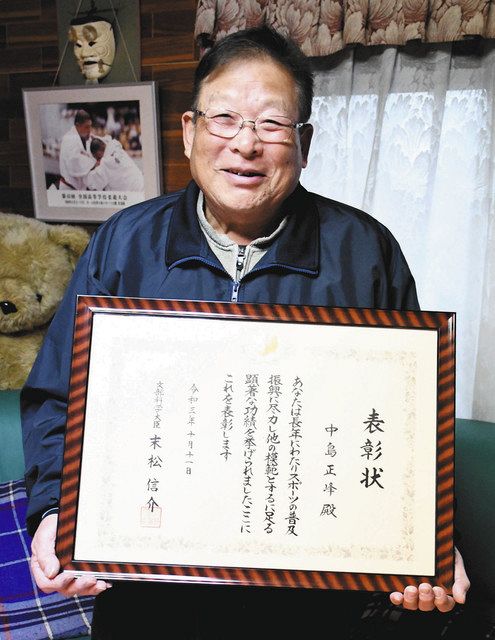 表彰状
中島正峰 殿
あなたは長年にわたりスポーツの普及
振興に尽力し他の模範とするに足る
顕著な功績を挙げられましたここに
これを表彰します
令和三年十月十一日
文部科学大臣 末松信介